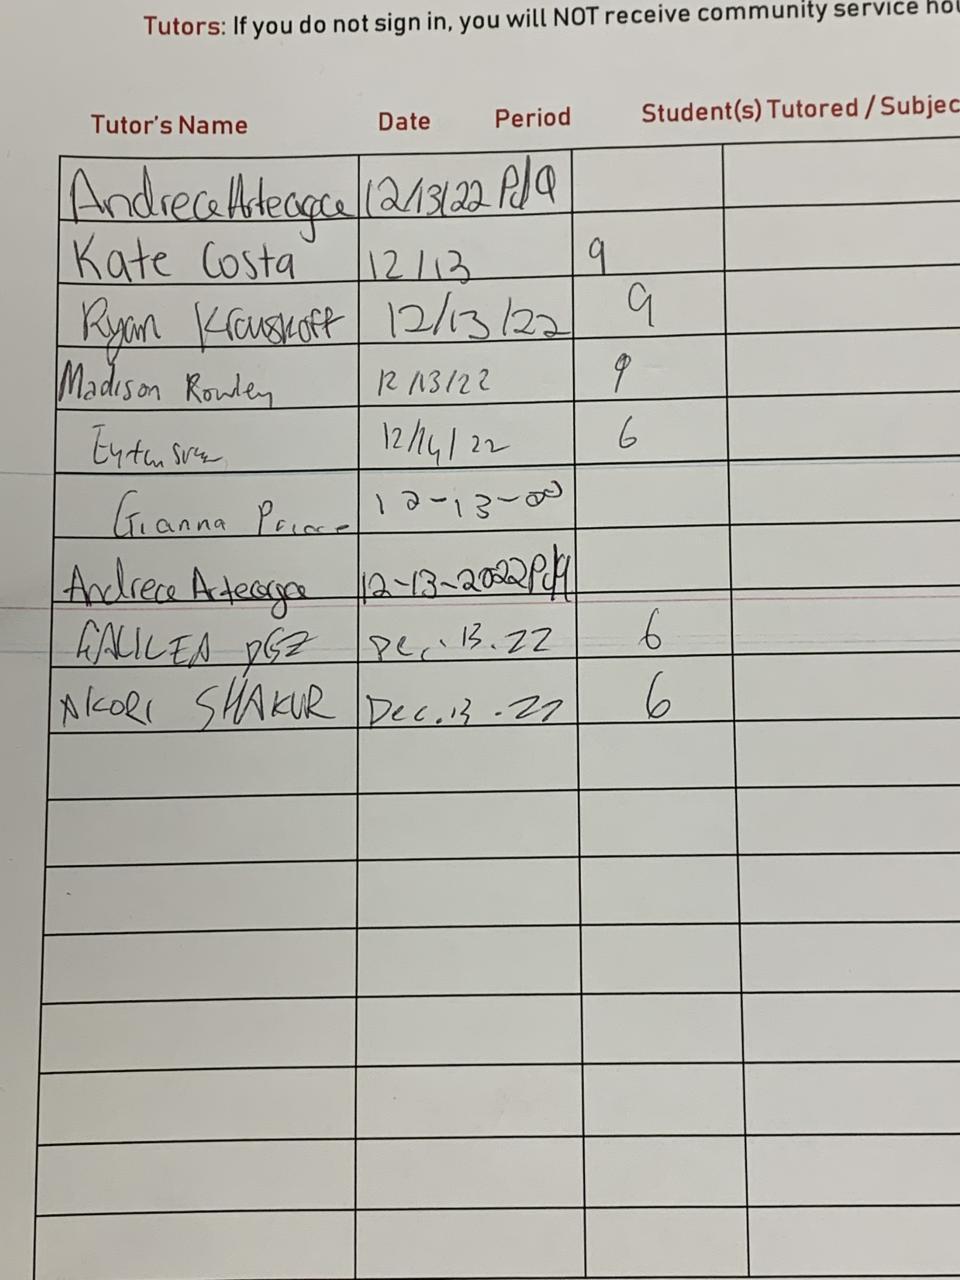 Tutors: If you do not sign in, you will NOT receive community service hou
Tutor's Name Date Period Student(s) Tutored / Subjec
Andrece Arteagce 12/13/22 Pd 9
Kate Costa 12/13 9
Ryan Krauskoff 12/13/22 9
Madison Rowley 12/13/22 9
12/14/22 6
Gianna 12-13-
Andrece Arteagce 12-13-2022 Pd 9
GALILEA 13.22 6
AKORI SHAKUR Dec.13.22 6